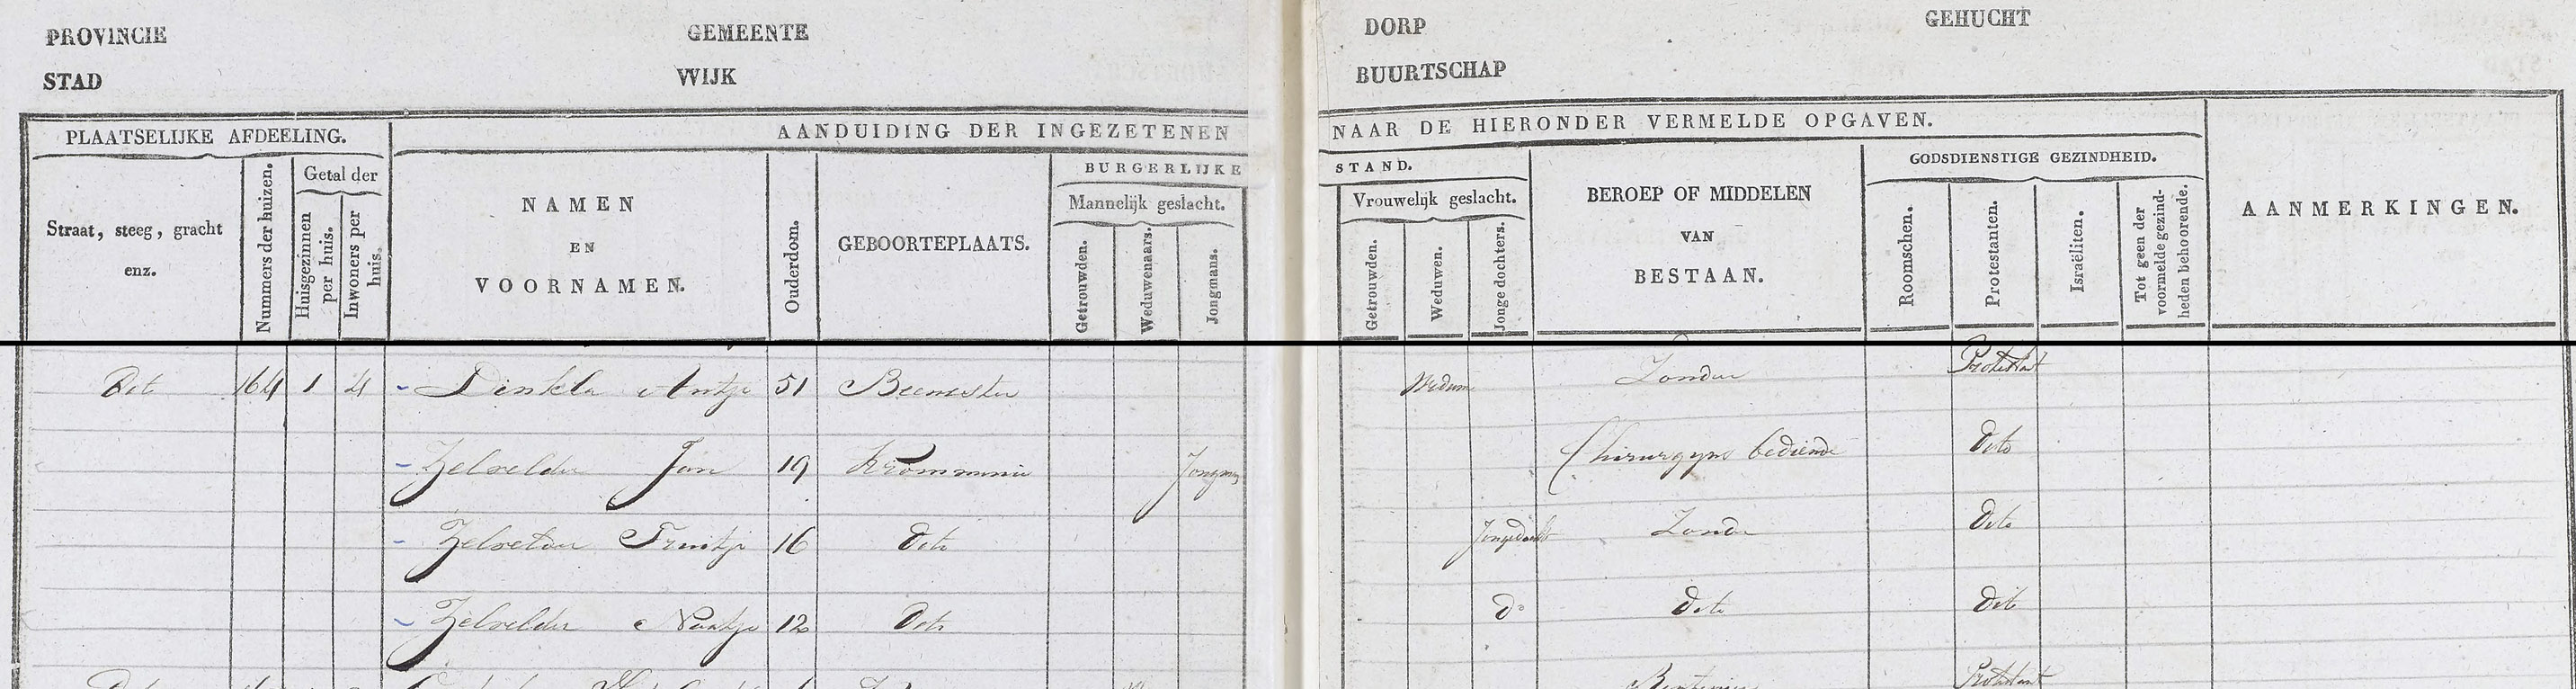 PROVINCIE GEMEENTE DORP GEHUCHT
STAD WIJK BUURTSCHAP
PLAATSELIJKE AFDEELING. AANDUIDING DER INGEZETENEN NAAR DE HIERONDER VERMELDE OPGAVEN.
Straat, steeg, gracht enz.
Nummers der huizen.
Getal der
Huisgezinnen per huis.
Inwoners per huis.
NAMEN
EN
VOORNAMEN.
Ouderdom.
GEBOORTEPLAATS.
BURGERLIJKE STAND.
Mannelijk geslacht.
Getrouwden.
Weduwenaars.
Jongmans.
Vrouwelijk geslacht.
Getrouwden.
Weduwen.
Jonge dochters.
BEROEP OF MIDDELEN
VAN
BESTAAN.
GODSDIENSTIGE GEZINDHEID.
Roomschen.
Protestanten.
Israëliten.
Tot geen der voormelde gezindheden behoorende.
AANMERKINGEN.
Dot 164 1 4 Dinkla Antje 51 Beemster Weduw Zonder Protestant
Zelvelder Jan 19 Krommenie Jongms Chirurgyns bediende Dito
Zelvelder Trintje 16 Dito Jongedocht Zonder Dito
Zelvelder Naatje 12 Dito do Dito Dito
Protestant